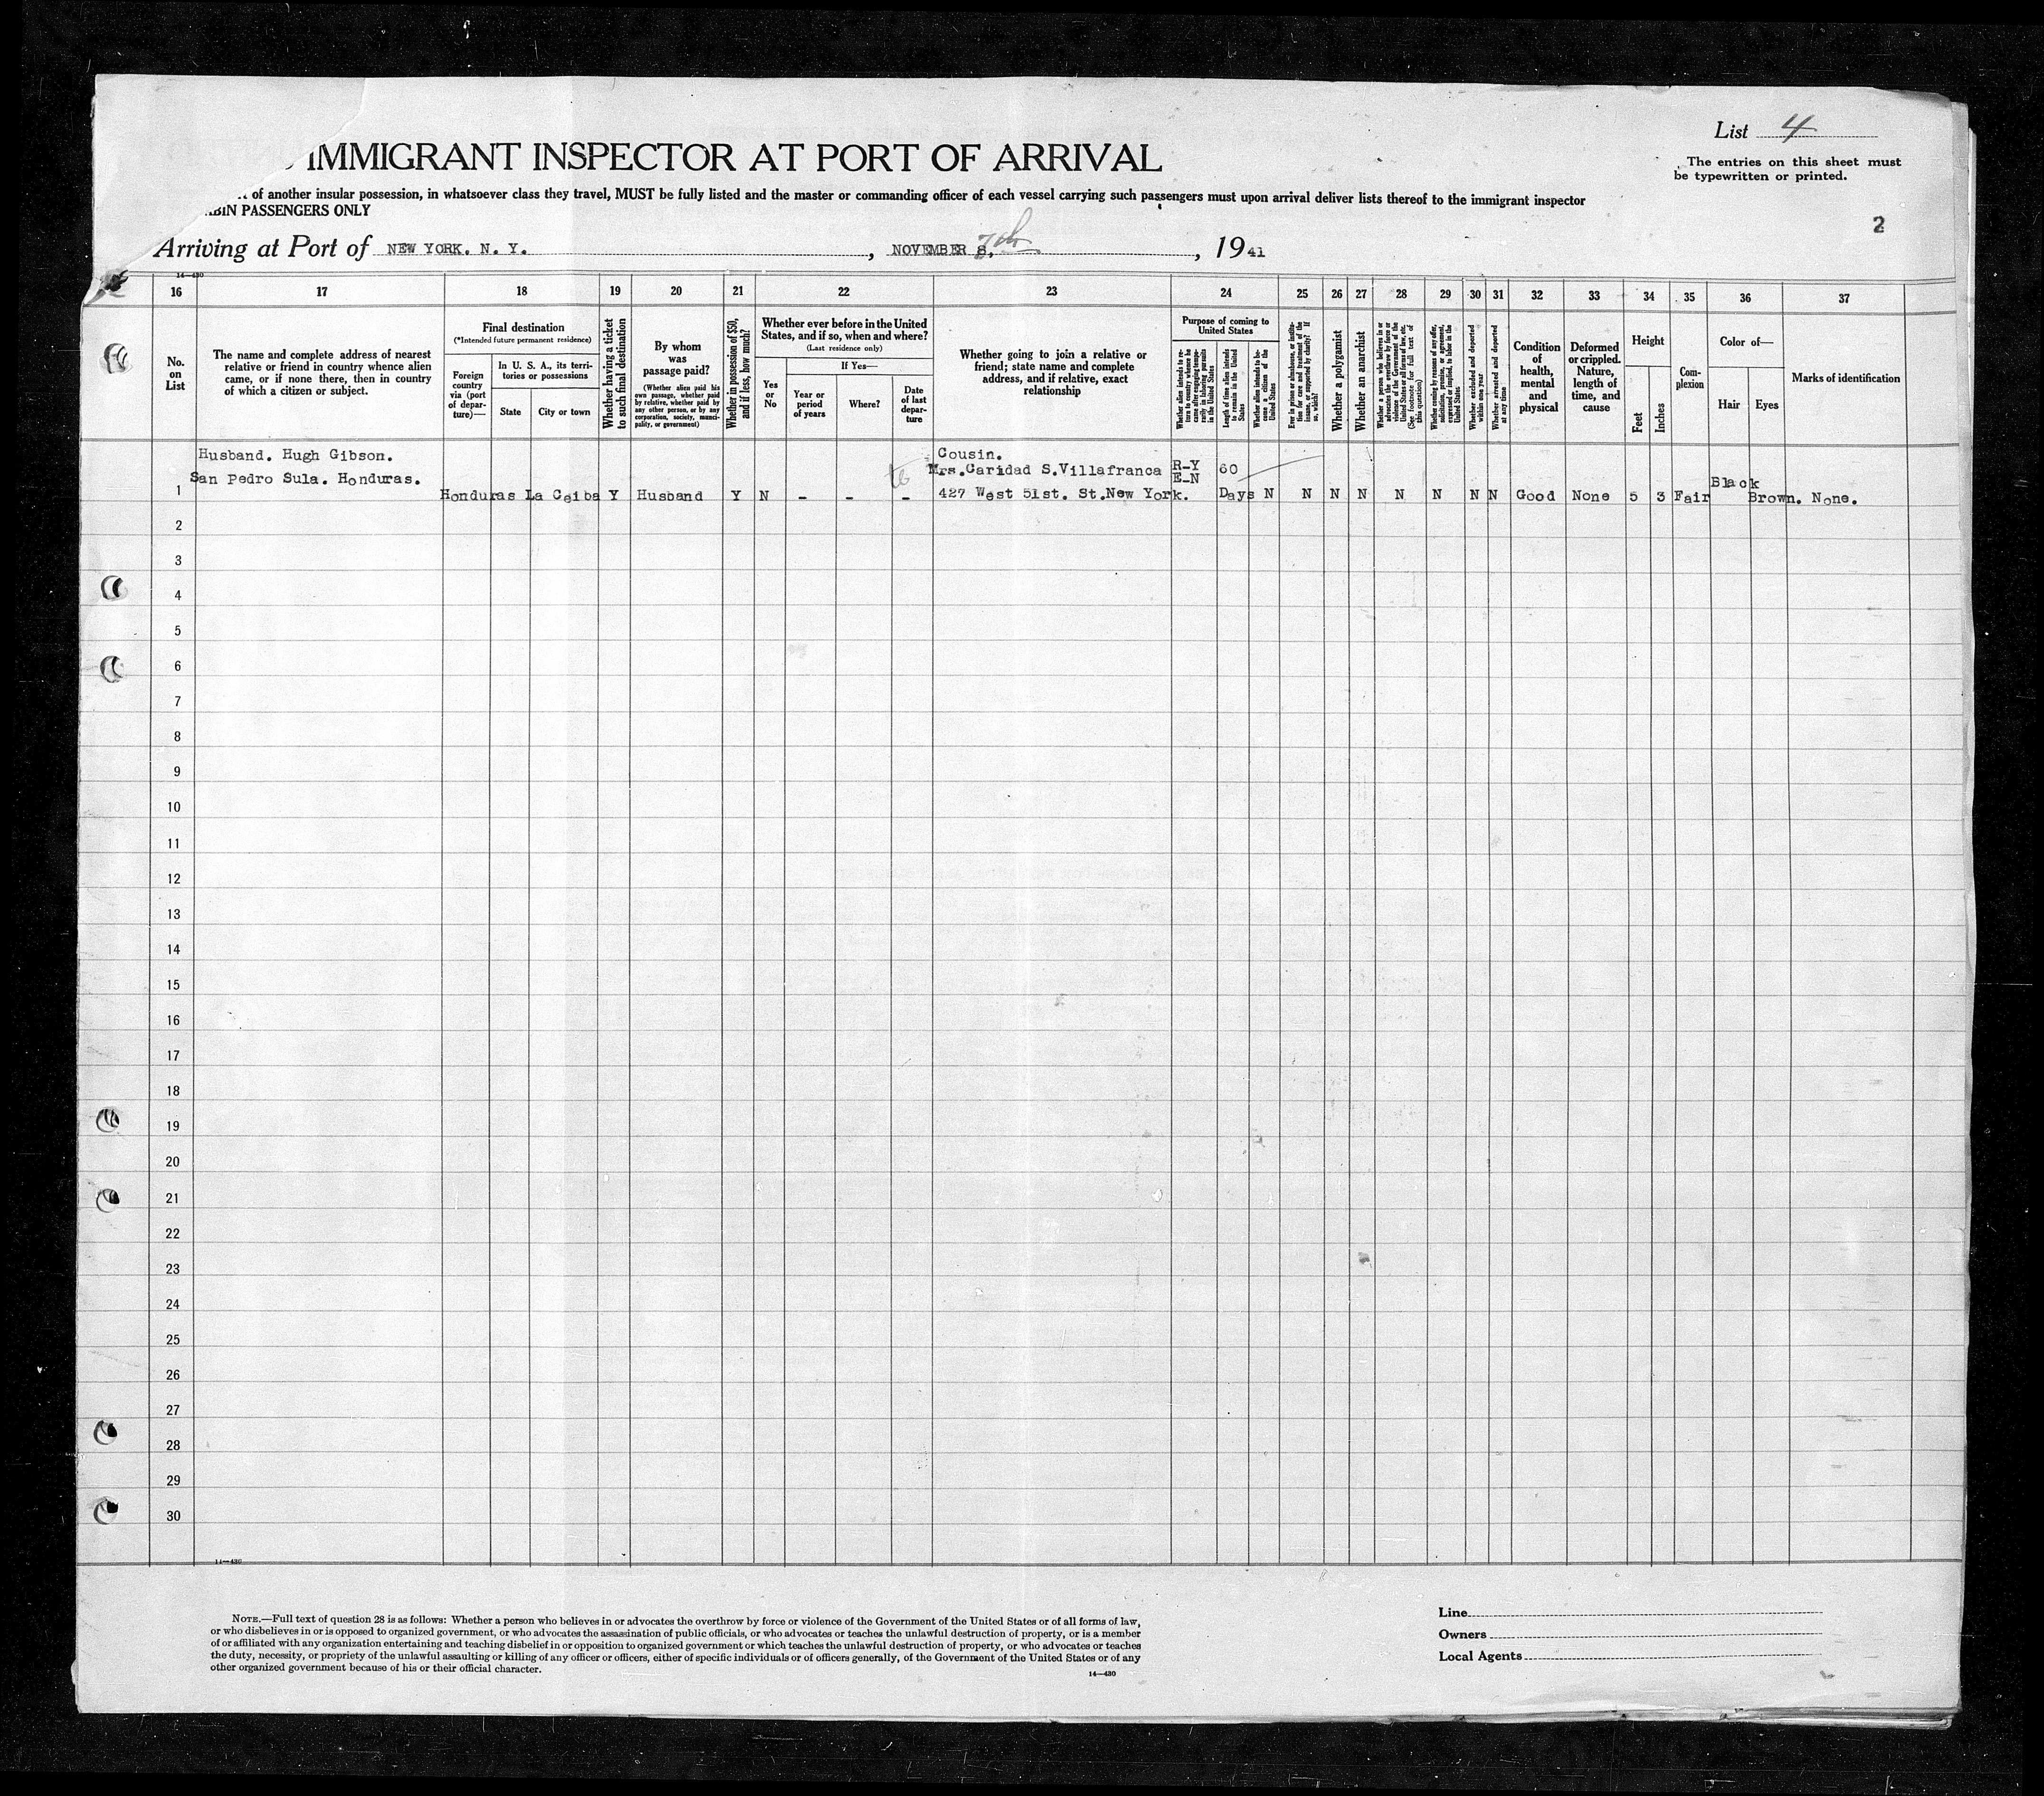 List 4
The entries on this sheet must
be typewritten or printed.
IMMIGRANT INSPECTOR AT PORT OF ARRIVAL
of another insular possession, in whatsoever class they travel, MUST be fully listed and the master or commanding officer of each vessel carrying such passengers must upon arrival deliver lists thereof to the immigrant inspector
PASSENGERS ONLY
2
Arriving at Port of NEW YORK. N. Y. , NOVEMBER 8, 7th , 19 41
14—430
16 17 18 19 20 21 22 23 24 25 26 27 28 29 30 31 32 33 34 35 36 37
No.
on
List
The name and complete address of nearest
relative or friend in country whence alien
came, or if none there, then in country
of which a citizen or subject.
Final destination
(*Intended future permanent residence)
Foreign
country
via (port
of depar-
ture)—
In U. S. A., its terri-
tories or possessions
State
City or town
Whether having a ticket
to such final destination
By whom
was
passage paid?
(Whether alien paid his
own passage, whether paid
by relative, whether paid by
any other person, or by any
corporation, society, munici-
pality, or government)
Whether in possession of $50,
and if less, how much?
Whether ever before in the United
States, and if so, when and where?
(Last residence only)
Yes
or
No
If Yes—
Year or
period
of years
Where?
Date
of last
depar-
ture
Whether going to join a relative or
friend; state name and complete
address, and if relative, exact
relationship
Purpose of coming to
United States
Whether alien intends to re-
turn to country whence he
came after engaging tempo-
rarily in laboring pursuits
in the United States
Length of time alien intends
to remain in the United
States
Whether alien intends to be-
come a citizen of the
United States
Ever in prison or almshouse, or institu-
tion for care and treatment of the
insane, or supported by charity? If
so, which?
Whether a polygamist
Whether an anarchist
Whether a person who believes in or
advocates the overthrow by force or
violence of the Government of the
United States or all forms of law, etc.
(See footnote for full text of
this question)
Whether coming by reasons of any offer,
solicitation, promise, or agreement,
expressed or implied, to labor in the
United States
Whether excluded and deported
within one year
Whether arrested and deported
at any time
Condition
of
health,
mental
and
physical
Deformed
or crippled.
Nature,
length of
time, and
cause
Height
Feet
Inches
Com-
plexion
Color of—
Hair
Eyes
Marks of identification
Husband. Hugh Gibson. Cousin.
San Pedro Sula. Honduras. Mrs.Caridad S.Villafranca R-Y 60
E-N
Black
1 Honduras La Ceiba Y Husband Y N - - - 427 West 51st. St.New York. Days N N N N N N N N Good None 5 3 Fair Brown. None.
2
3
4
5
6
7
8
9
10
11
12
13
14
15
16
17
18
19
20
21
22
23
24
25
26
27
28
29
30
14—430
NOTE.—Full text of question 28 is as follows: Whether a person who believes in or advocates the overthrow by force or violence of the Government of the United States or of all forms of law,
or who disbelieves in or is opposed to organized government, or who advocates the assassination of public officials, or who advocates or teaches the unlawful destruction of property, or is a member
of or affiliated with any organization entertaining and teaching disbelief in or opposition to organized government or which teaches the unlawful destruction of property, or who advocates or teaches
the duty, necessity, or propriety of the unlawful assaulting or killing of any officer or officers, either of specific individuals or of officers generally, of the Government of the United States or of any
other organized government because of his or their official character.
14—430
Line
Owners
Local Agents